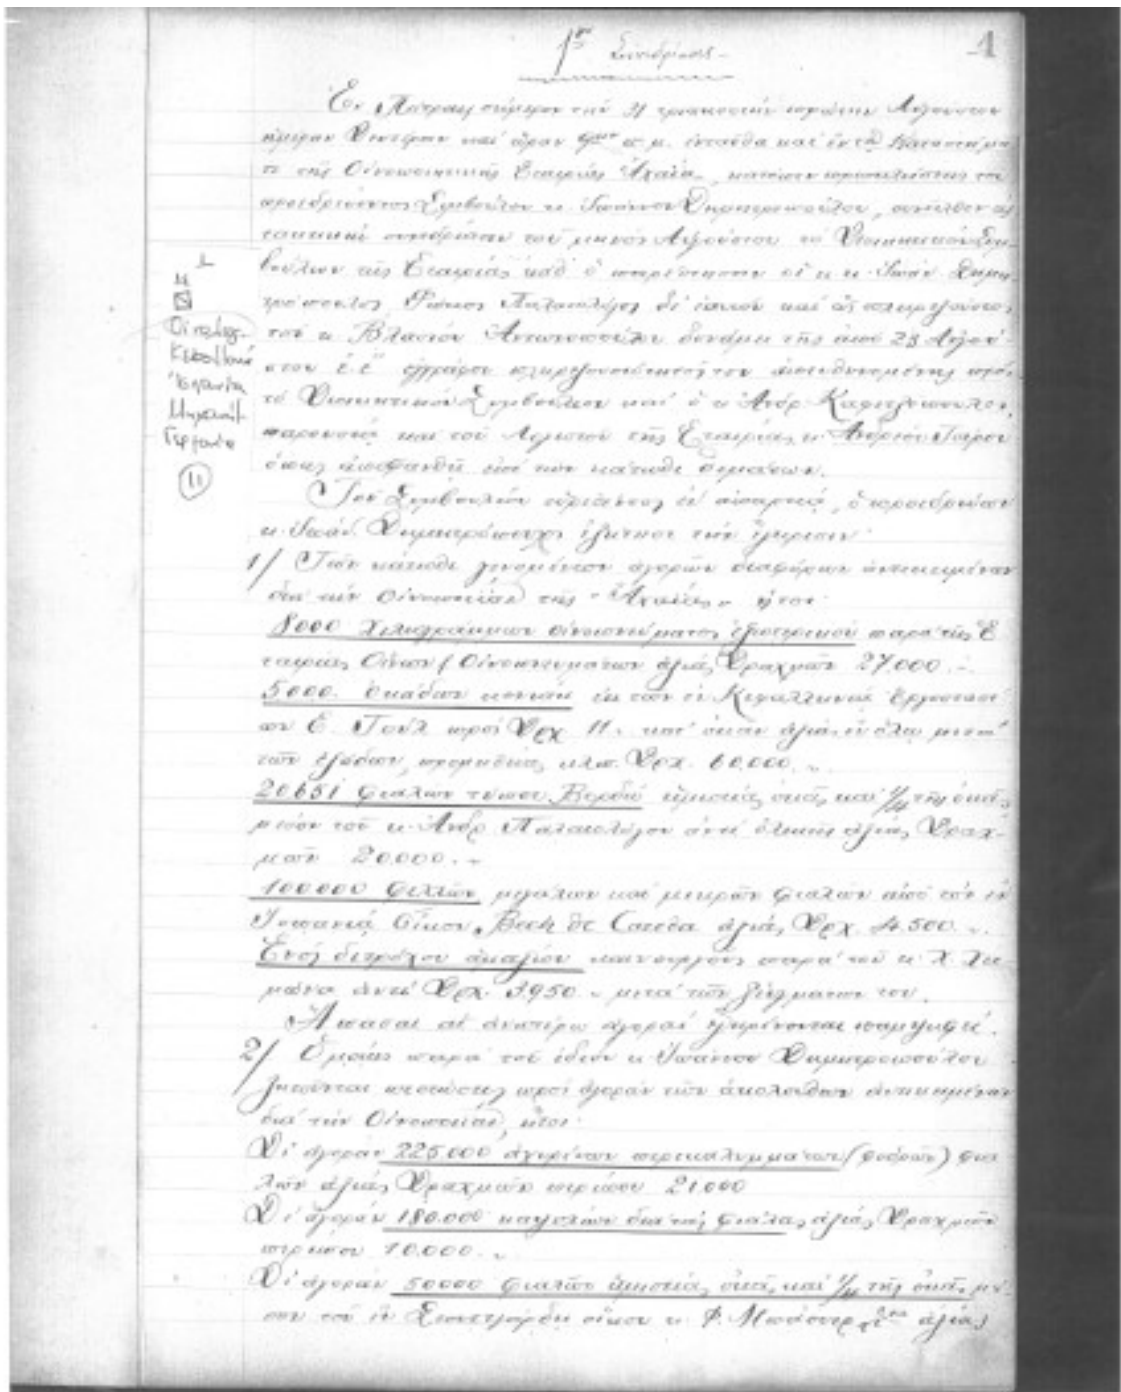 1η Συνεδρίασις
1
Ἐν Πάτραις σήμερον τὴν 31 τριακοστὴν πρώτην Αὐγούστου
ἡμέραν Δευτέραν καὶ ὥραν π.μ. ἐνταῦθα καὶ ἐν τῷ Καταστήμα-
τι τῆς Οἰνοποιητικῆς Ἑταιρίας Ἀχαΐα, κατόπιν προσκλήσεως τοῦ
προεδρεύοντος Συμβούλου κ. Ἰωάννου Δημητροπούλου, συνῆλθεν εἰς
τακτικὴν συνεδρίασιν τοῦ μηνὸς Αὐγούστου τὸ Διοικητικὸν Συμ-
βούλιον τῆς Ἑταιρίας καθ' ὃ παρέστησαν οἱ κ.κ. Ἰωάν. Δημη-
τρόπουλος Παλαιολόγος δι' ἑαυτὸν καὶ ὡς πληρεξούσιος
τοῦ κ. Βλασίου Ἀντωνοπούλου δυνάμει τῆς ἀπὸ 28 Αὐγού-
στου ἐ.ἔ. ἐγγράφου πληρεξουσιότητός του ἀπευθυνομένης πρὸς
τὸ Διοικητικὸν Συμβούλιον καὶ ὁ κ. Ἀνδρ.
παρουσίᾳ καὶ τοῦ Λογιστοῦ τῆς Ἑταιρίας κ. Ἀνδρέου
ὅπως ἀποφανθῇ ἐπὶ τῶν κάτωθι θεμάτων.
Τοῦ Συμβουλίου εὑρεθέντος ἐν ἀπαρτίᾳ, ὁ προεδρεύων
κ. Ἰωάν. Δημητρόπουλος ἐζήτησε τὴν ἔγκρισιν
1/ Τῶν κάτωθι γενομένων ἀγορῶν διαφόρων ἀντικειμένων
διὰ τὴν Οἰνοποιίαν τῆς "Ἀχαΐας" ἤτοι
8000 χιλιογράμμων οἰνοπνεύματος ἐξωτερικοῦ παρὰ τῆς Ἑ-
ταιρίας Οἴνων & Οἰνοπνευμάτων ἀξίας Δραχμῶν 27.000.-
5000. ὀκάδων κονιὰκ ἐκ τῶν ἐν Κεφαλληνίᾳ Ἐργοστασί-
ων Ε. Τοὺλ πρὸς Δρχ. 11. κατ' ὀκᾶν ἀξίας ἐν ὅλῳ μετὰ
τῶν ἐξόδων, προμηθείας κλπ. Δρχ. 60.000.-
20651 φιαλῶν τύπου Βορδὼ ἡμισείας ὀκᾶς καὶ 1/4 τῆς ὀκᾶς
μέσον τοῦ κ. Ἀνδρ. Παλαιολόγου ἀντὶ ὁλικῆς ἀξίας Δραχ-
μῶν 20.000.-
100.000 φελλῶν μεγάλων καὶ μικρῶν φιαλῶν ἀπὸ τὸν ἐν
Ἱσπανίᾳ Οἶκον ἀξίας Δρχ. 4.500.-
Ἑνὸς διτρόχου ἁμαξίου καινουργοῦς παρὰ τοῦ κ. Χ.
ἀντὶ Δρχ. 3950.- μετὰ τῶν του.
Ἅπασαι αἱ ἀνωτέρω ἀγοραὶ ἐγκρίνονται παμψηφεί.
2/ Ὁμοίως παρὰ τοῦ ἰδίου κ. Ἰωάννου Δημητροπούλου
ζητοῦνται πιστώσεις πρὸς ἀγορὰν τῶν ἀκολούθων ἀντικειμένων
διὰ τὴν Οἰνοποιίαν, ἤτοι
Δι' ἀγορὰν 225.000 ἀχυρίνων περικαλυμμάτων (φοδρῶν) φια-
λῶν ἀξίας Δραχμῶν περίπου 21.000
Δι' ἀγορὰν 180.000 καψουλίων διὰ τὰς φιάλας ἀξίας Δραχμῶν
περίπου 10.000.-
Δι' ἀγορὰν 50000 φιαλῶν ἡμισείας ὀκᾶς καὶ 1/4 τῆς ὀκᾶς μέ-
σον τοῦ ἐν οἴκου κ. Φ. ἀξίας
Γερμανία
11